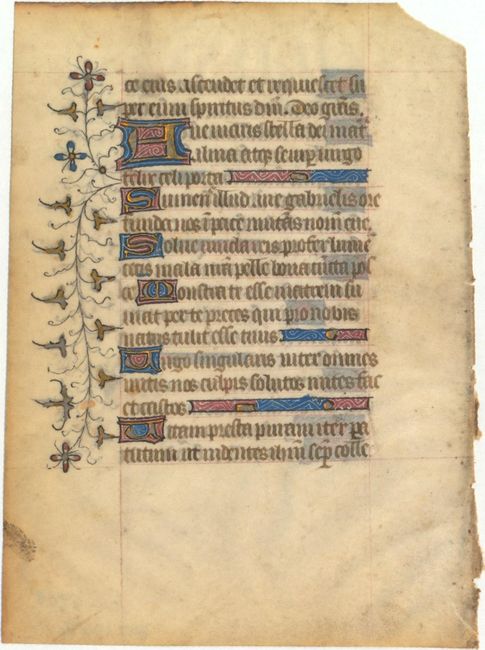 ce eius ascendet et requiescet su
per eum spiritus dm̄. Deo gr̄as.
Aue maris stella dei mat̾
alma atq; semp̱ uirgo
felix celi porta
Sumens illud aue gabrielis ore
funda nos ī pace mutās nom̄ eue
Solue uincla reis profer lume̅
cecis mala n̄ra pelle bona cūcta pos
ce Monstra te esse matrem su
mat per te preces qui pro nobis
natus tulit esse tuus
Uirgo singularis inter omnes
mitis nos culpis solutos mites fac
et castos
Uitam presta puram iter pa
ra tutum ut uidentes ih̄m semp̱ colle